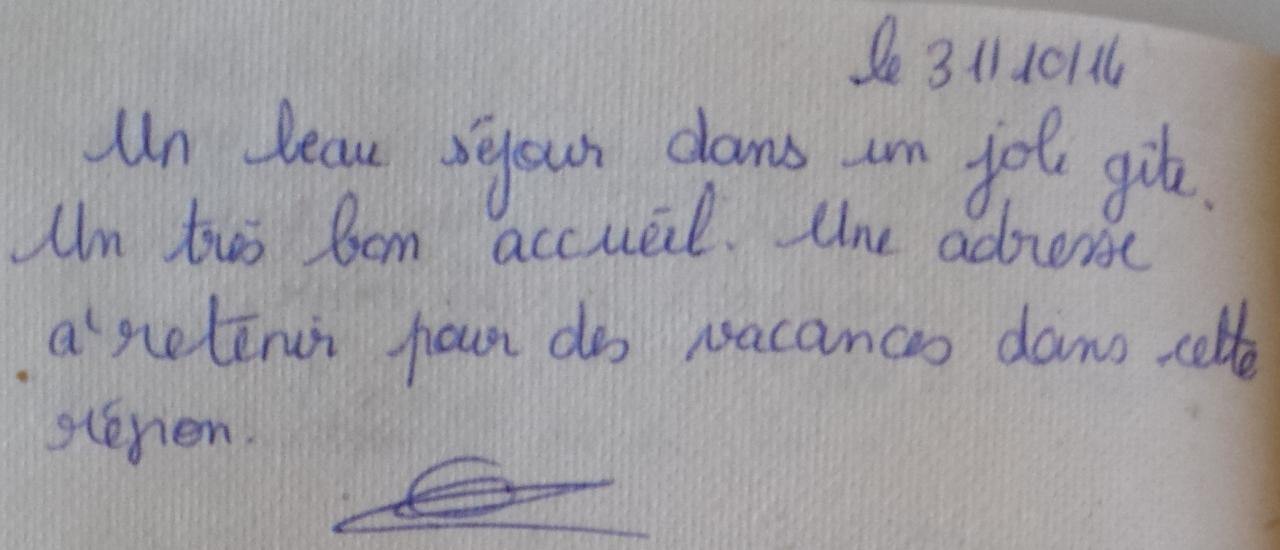 le 31/10/14
Un beau séjour dans un joli gîte.
Un très bon accueil. Une adresse
à retenir pour des vacances dans cette
région.